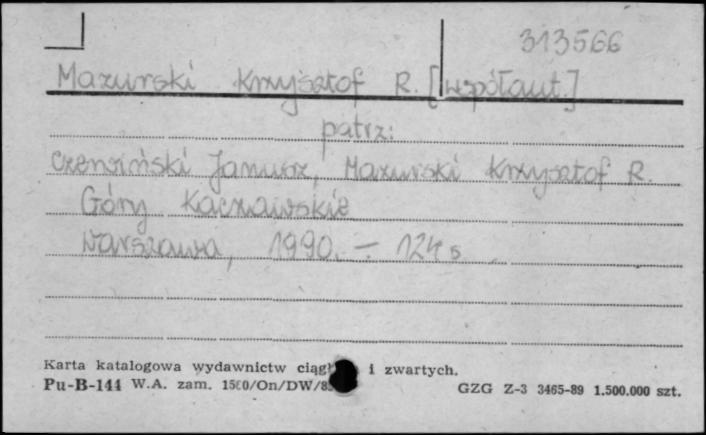 313566
Mazurski Krzysztof R. [współaut.]
patrz:
Czerwiński Janusz, Mazurski Krzysztof R.
Góry Kaczawskie
Warszawa, 1990. - 124 s
Karta katalogowa wydawnictw i zwartych.
Pu-B-144 W.A. zam. GZG Z-3 3465-89 1.500.000 szt.